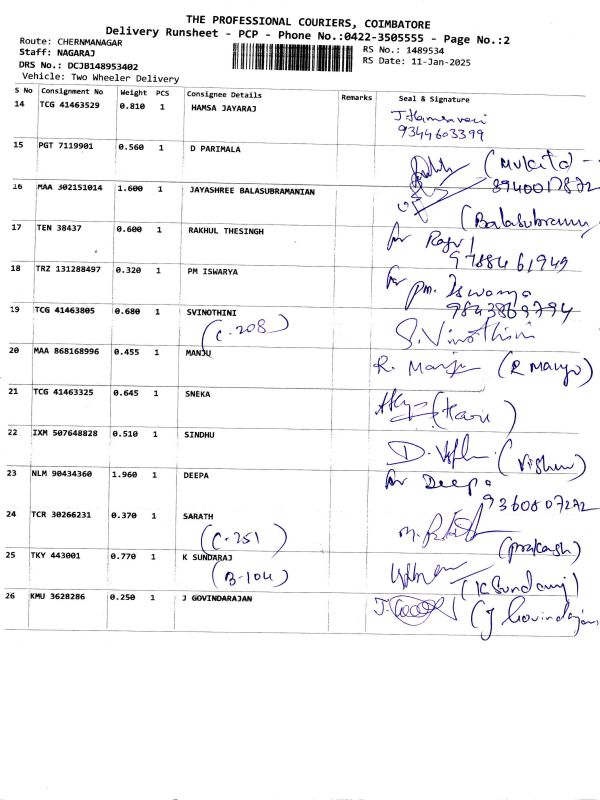 THE PROFESSIONAL COURIERS, COIMBATORE
Delivery Runsheet - PCP - Phone No.:0422-3505555 - Page No.:2
Route: CHERNMANAGAR
Staff: NAGARAJ
DRS No.: DCJB148953402
Vehicle: Two Wheeler Delivery
RS No.: 1489534
RS Date: 11-Jan-2025
S No Consignment No Weight PCS Consignee Details Remarks Seal & Signature
14 TCG 41463529 0.810 1 HAMSA JAYARAJ
9344603399
15 PGT 7119901 0.560 1 D PARIMALA
16 MAA 302151014 1.600 1 JAYASHREE BALASUBRAMANIAN
17 TEN 38437 0.600 1 RAKHUL THESINGH for
18 TRZ 131288497 0.320 1 PM ISWARYA for pm. Iswarya
19 TCG 41463805 0.680 1 SVINOTHINI S. Vinothini
(C-208)
20 MAA 868168996 0.455 1 MANJU R. Manju (R Manju)
21 TCG 41463325 0.645 1 SNEKA
22 IXM 507648828 0.510 1 SINDHU
23 NLM 90434360 1.960 1 DEEPA for Deepa
24 TCR 30266231 0.370 1 SARATH
(C-251) (prakash)
25 TKY 443001 0.770 1 K SUNDARAJ
(B-104) (K Sundaraj)
26 KMU 3628286 0.250 1 J GOVINDARAJAN (J Govindajan